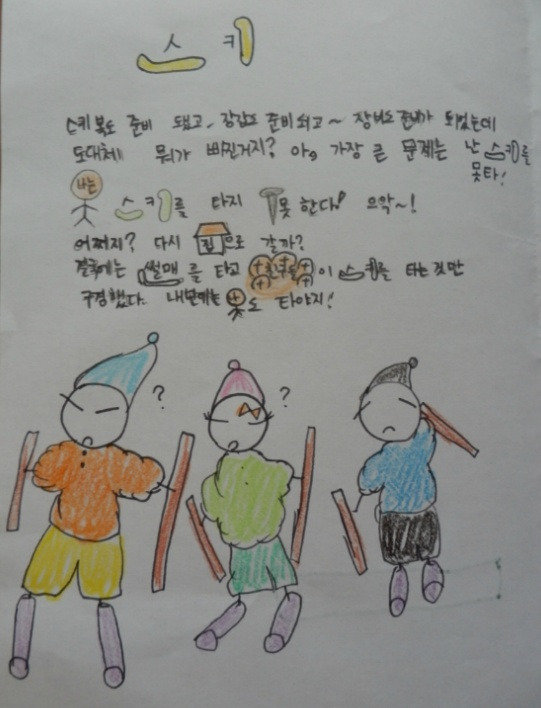 스키
스키복도 준비 됐고, 장갑도 준비되고~ 장비도 준비가 되있는데
도대체 뭐가 빠진거지? 아, 가장 큰 문제는 난 스키를
못타!
나는
스키를 타지 못한다! 으악~!
어쩌지? 다시 집으로 갈까?
결국에는 썰매를 타고 친구들이 스키를 타는것만
구경했다. 내년에는 꼭 타야지!
? ?